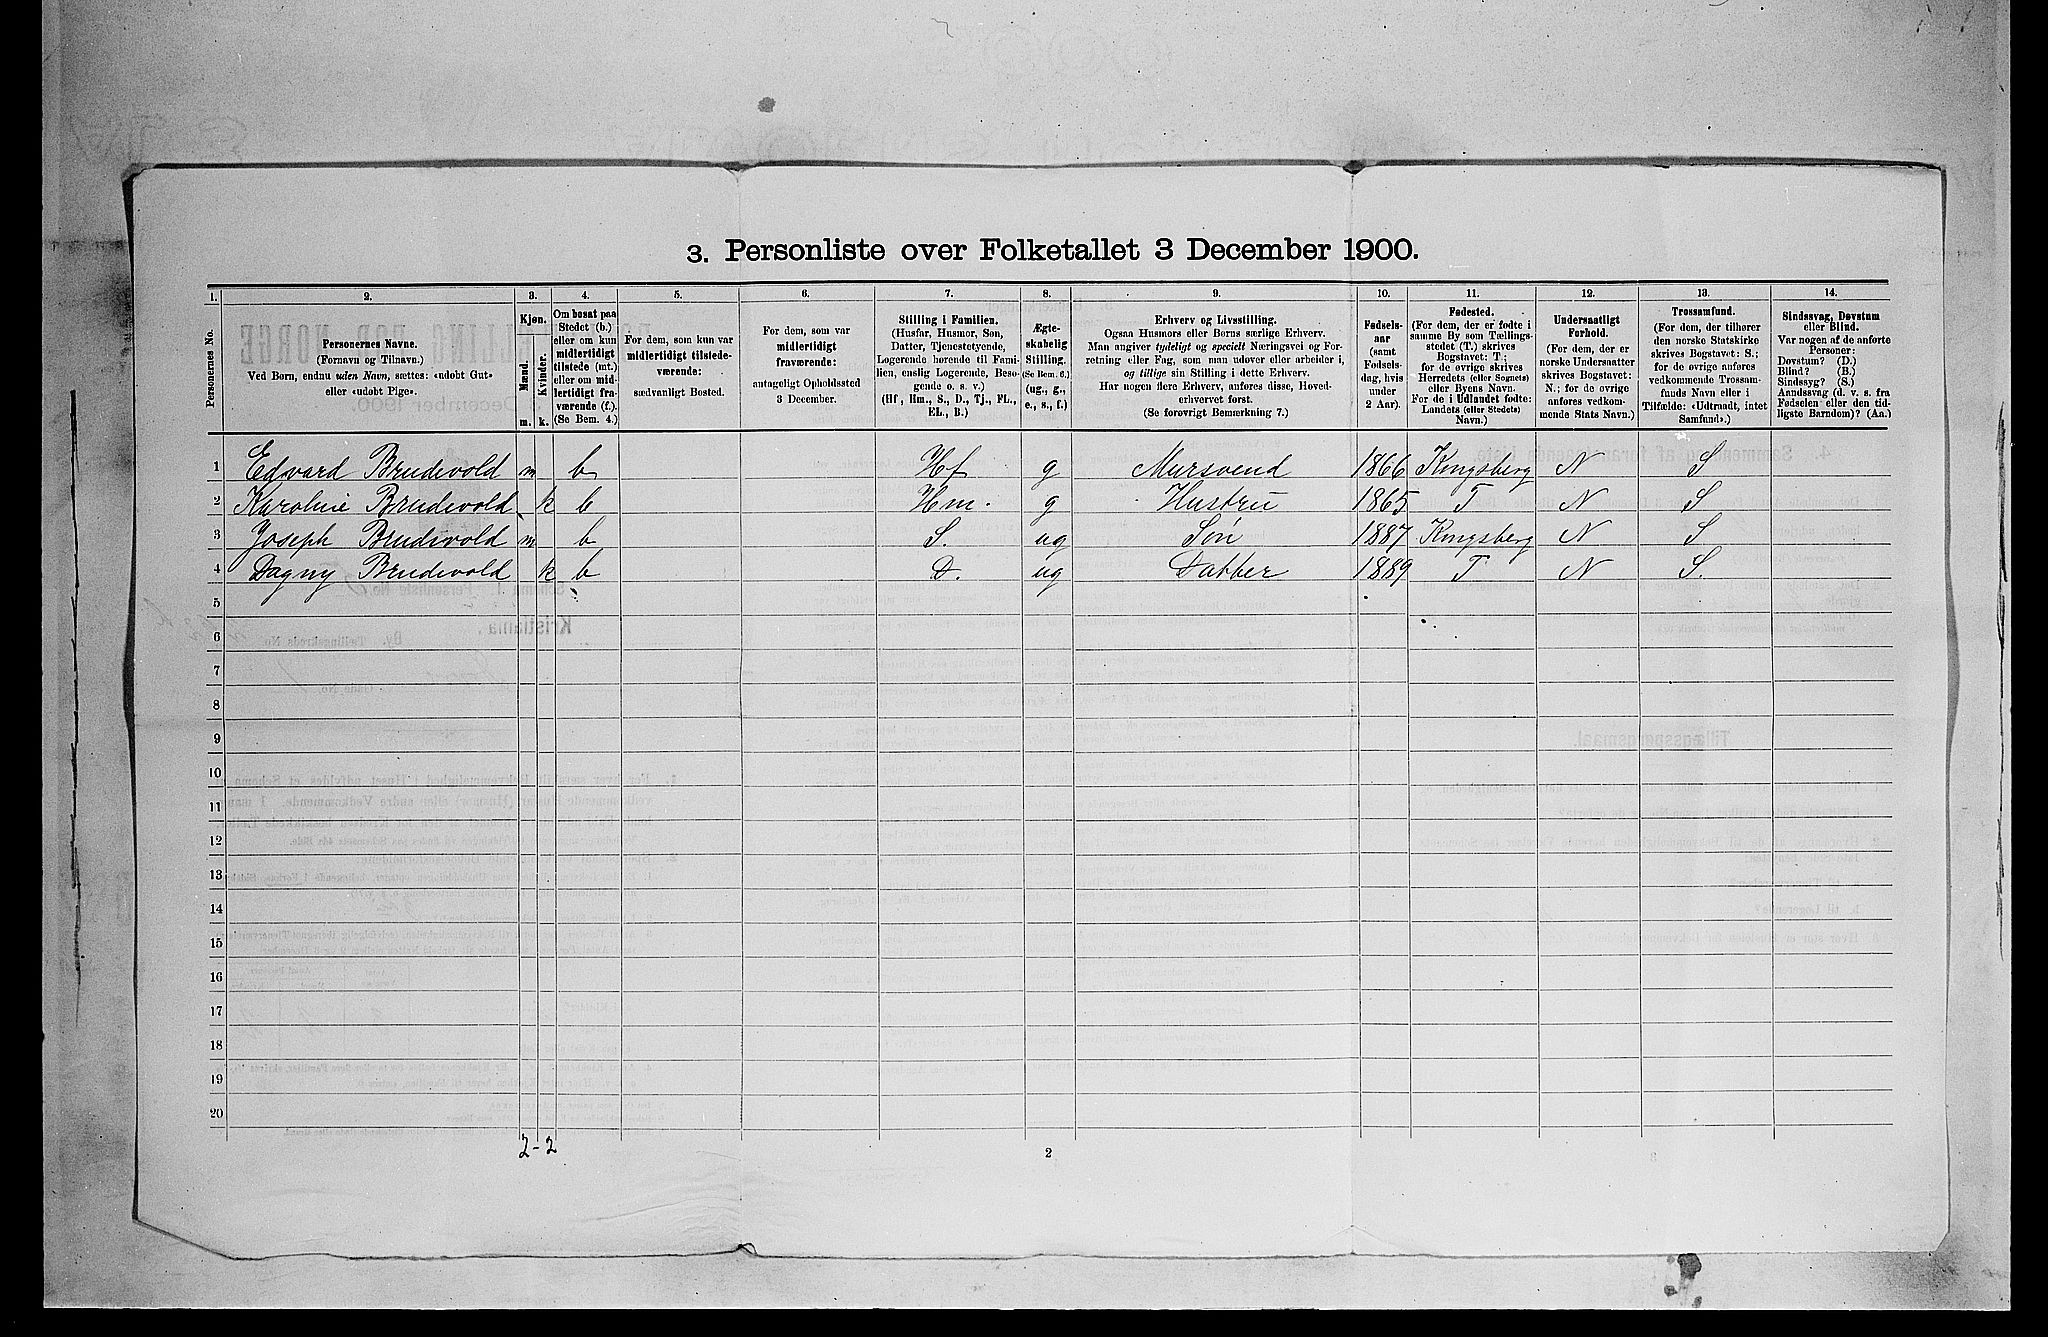 3. Personliste over Folketallet 3 December 1900.
1. 2. 3. 4. 5. 6. 7. 8. 9. 10. 11. 12. 13. 14.
Personernes No.
Personernes Navne.
(Fornavn og Tilnavn.)
Ved Børn, endnu uden Navn, sættes: «udøbt Gut»
eller «udøbt Pige».
Kjøn.
Mænd.
Kvinder.
m. k.
Om bosat paa
Stedet (b.)
eller om kun
midlertidigt
tilstede (mt.)
eller om mid-
lertidigt fra-
værende (f.).
(Se Bem. 4.)
For dem, som kun var
midlertidigt tilstede-
værende:
sædvanligt Bosted.
For dem, som var
midlertidigt
fraværende:
antageligt Opholdssted
3 December.
Stilling i Familien.
(Husfar, Husmor, Søn,
Datter, Tjenestetyende,
Logerende hørende til Fami-
lien, enslig Logerende, Besø-
gende o. s. v.)
(Hf, Hm., S., D., Tj., FL.,
EL., B.)
Ægte-
skabelig
Stilling.
(Se Bem. 6.)
(ug., g.,
e., s., f.)
Erhverv og Livsstilling.
Ogsaa Husmors eller Børns særlige Erhverv.
Man angiver tydeligt og specielt Næringsvei og For-
retning eller Fag, som man udøver eller arbeider i,
og tillige sin Stilling i dette Erhverv.
Har nogen flere Erhverv, anføres disse, Hoved-
erhvervet først.
(Se forøvrigt Bemærkning 7.)
Fødsels-
aar
(samt
Fødsels-
dag, hvis
under
2 Aar).
Fødested.
(For dem, der er fødte i
samme By som Tællings-
stedet (T.) skrives
Bogstavet: T;
for de øvrige skrives
Herredets (eller Sognets)
eller Byens Navn.
For de i Udlandet fødte:
Landets (eller Stedets)
Navn.)
Undersaatligt
Forhold.
(For dem, der er
norske Undersaatter
skrives Bogstavet:
N.; for de øvrige
anføres vedkom-
mende Stats Navn.)
Trossamfund.
(For dem, der tilhører
den norske Statskirke
skrives Bogstavet: S.;
for de øvrige anføres
vedkommende Trossam-
funds Navn eller i
Tilfælde: «Udtraadt, intet
Samfund».)
Sindssvag, Døvstum
eller Blind.
Var nogen af de anførte
Personer:
Døvstum? (D.)
Blind? (B.)
Sindssyg? (S.)
Aandssvag (d. v. s. fra
Fødselen eller den tid-
ligste Barndom)? (Aa.)
1 Edvard Brudevold m b Hf g Mursvend 1866 Kongsberg N S
2 Karoline Brudevold k b Hm. g Hustru 1865 T N S
3 Joseph Brudevold m b S. ug Søn 1887 Kongsberg N S
4 Dagny Brudevold k b D. ug Datter 1889 T N S.
5
6
7
8
9
10
11
12
13
14
15
16
17
18
19
20
2-2
2